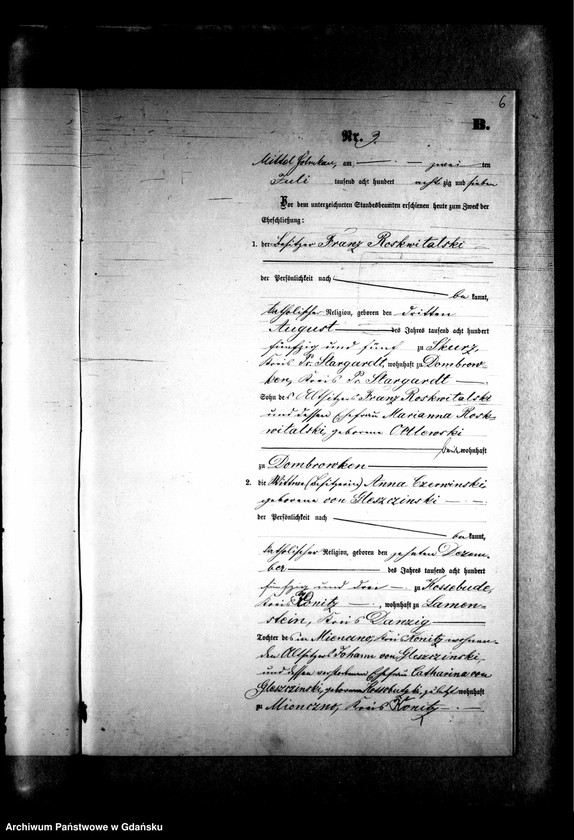 6
B.
Nr. 9.
Mittel Golmkau, am zwei ten
Juli tausend acht hundert acht zig und sieben
Vor dem unterzeichneten Standesbeamten erschienen heute zum Zweck der
Eheschließung:
1. der Besitzer Franz Roskwitalski
der Persönlichkeit nach
be kannt,
katholischer Religion, geboren den dritten
August des Jahres tausend acht hundert
fünfzig und fünf zu Skurz,
Kreis Pr. Stargardt, wohnhaft zu Dombrow-
ken, Kreis Pr. Stargardt
Sohn des Altsitzers Franz Roskwitalski
und dessen Ehefrau Marianna Rosk-
witalski, geborene
wohnhaft
zu Dombrowken
2. die Wittwe (Besitzerin) Anna Czerwinski
geborene von Gleszczinski
der Persönlichkeit nach
be kannt,
katholischer Religion, geboren den zehnten Dezem-
ber des Jahres tausend acht hundert
fünfzig und drei zu Kossebude,
Kreis Konitz, wohnhaft zu Lamen-
stein, Kreis Danzig
Tochter des in Kreis Konitz wohnen-
den Altsitzers Johann von Gleszczinski,
und dessen verstorbenen Ehefrau Catharina von
Gleszczinski, geborene zuletzt wohnhaft
zu Kreis Konitz
Archiwum Państwowe w Gdańsku